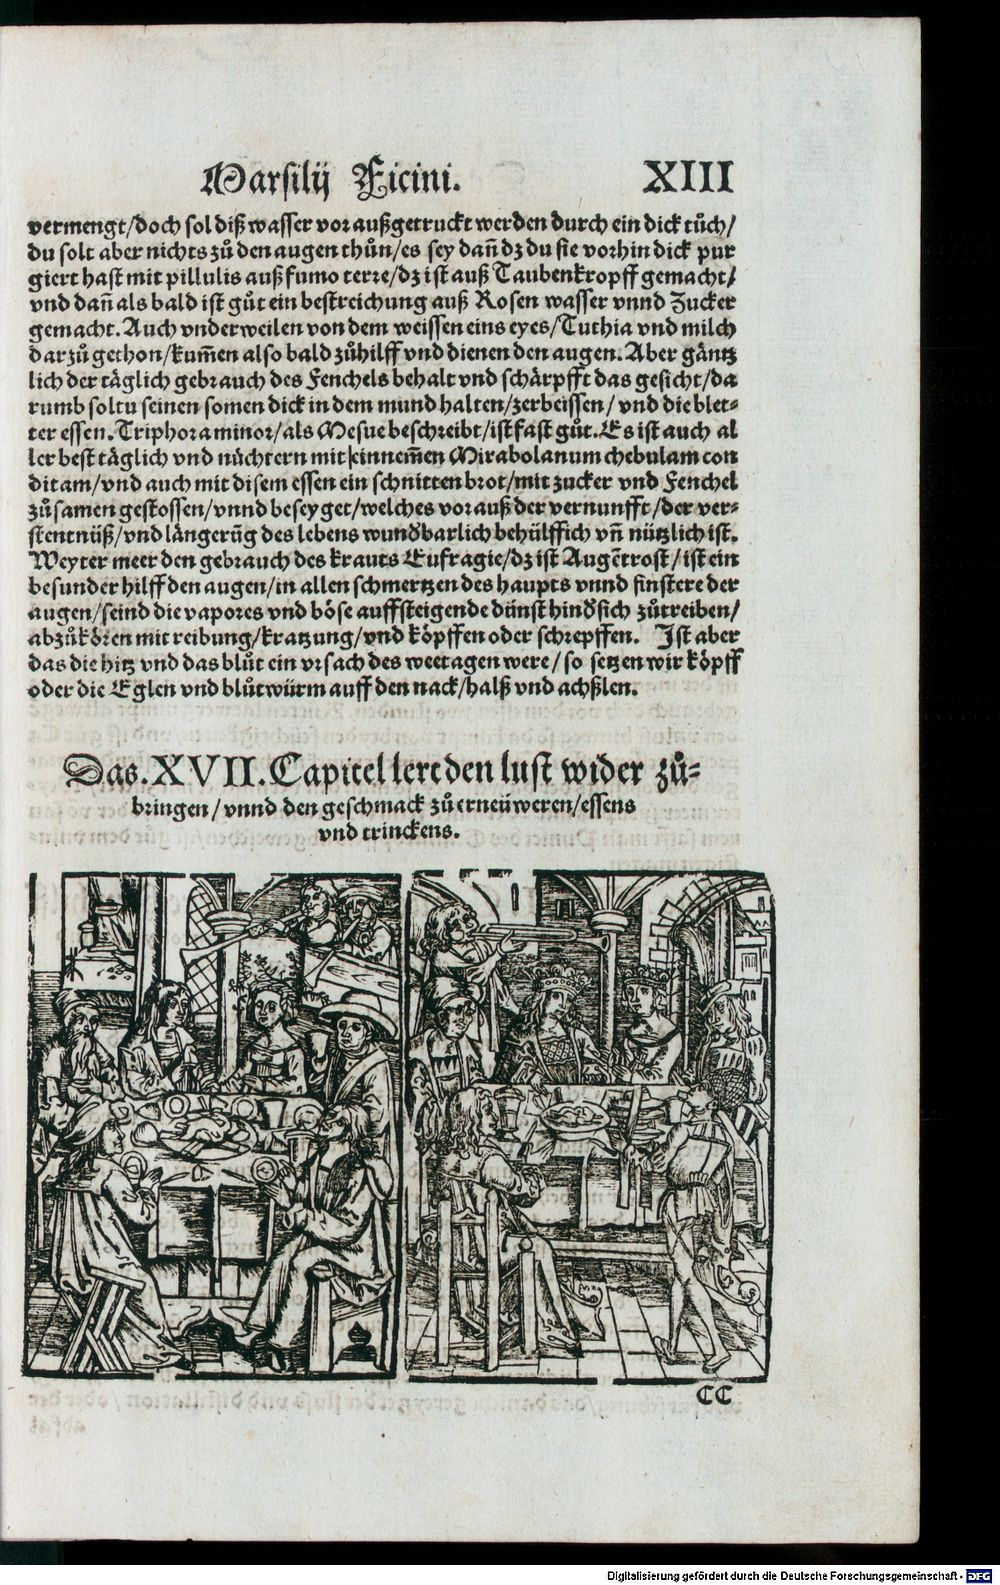 Marsilij Ficini. XIII
vermengt/doch sol diß wasser vor außgetruckt werden durch ein dick tůch/
du solt aber nichts zů den augen thůn/es sey dañ dz du sie vorhin dick pur
giert hast mit pillulis auß fumo terre/dz ist auß Taubenkropff gemacht/
vnd dañ als bald ist gůt ein bestreichung auß Rosen wasser vnnd Zucker
gemacht. Auch vnderweilen von dem weissen eins eyes/Tuthia vnd milch
darzů gethon/kum̃en also bald zůhilff vnd dienen den augen. Aber gäntz
lich der täglich gebrauch des Fenchels behalt vnd schärpfft das gesicht/da
rumb soltu seinen somen dick in dem mund halten/zerbeissen/ vnd die blet-
ter essen. Triphora minor/als Mesue beschreibt/ist fast gůt. Es ist auch al
ler best täglich vnd nüchtern mit einnem̃en Mirabolanum chebulam con
ditam/vnd auch mit disem essen ein schnitten brot/mit zucker vnd Fenchel
zůsamen gestossen/vnnd beseyget/welches vorauß der vernunfft/der ver-
stentnüß/vnd längerũg des lebens wundbarlich behülffich vñ nützlich ist.
Weyter meer den gebrauch des krauts Eufragie/dz ist Augẽtrost/ist ein
besunder hilff den augen/in allen schmertzen des haupts vnnd finstere der
augen/seind die vapores vnd böse auffsteigende dünst hindsich zůtreiben/
abzůkören mit reibung/kratzung/vnd köpffen oder schrepffen. Ist aber
das die hitz vnd das blůt ein vrsach des weetagen were/so setzen wir köpff
oder die Eglen vnd blůtwürm auff den nack/halß vnd achßlen.
Das. XVII. Capitel lert den lust wider zů-
bringen/vnnd den geschmack zů erneüweren/essens
vnd trinckens.
CC
Digitalisierung gefördert durch die Deutsche Forschungsgemeinschaft - DFG